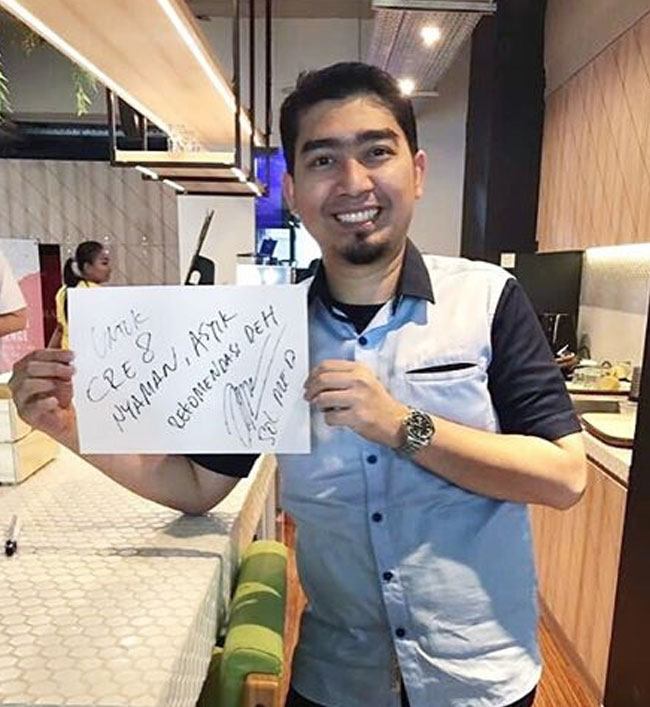 UNTUK
CRE 8
NYAMAN, ASYIK
REKOMENDASI DEH